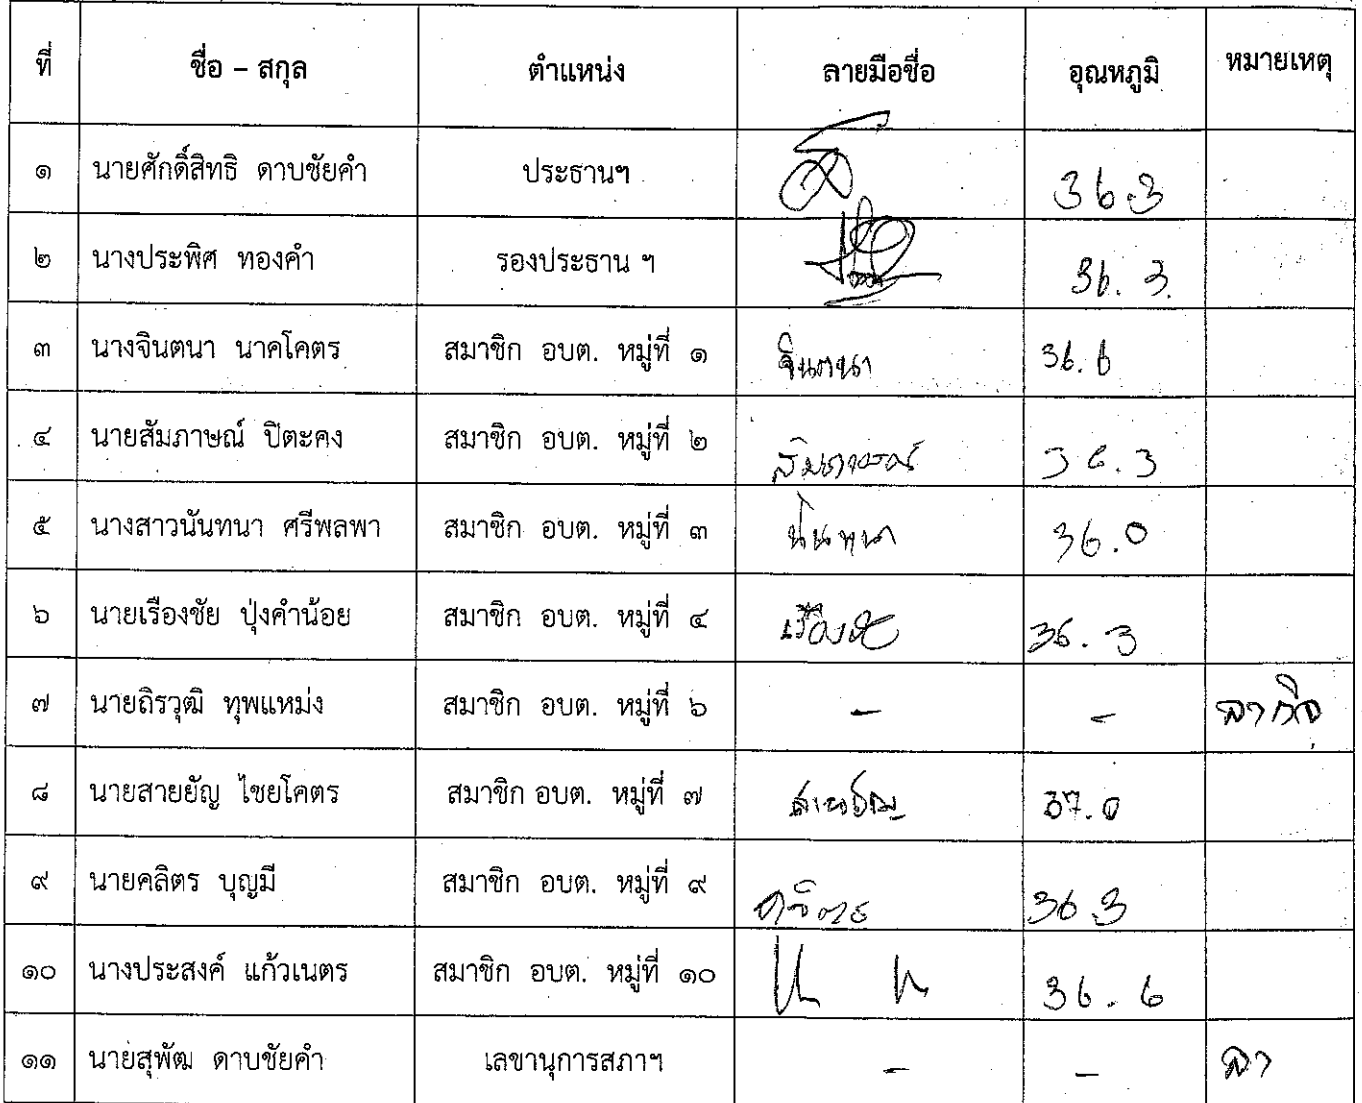 ที่ ชื่อ – สกุล ตำแหน่ง ลายมือชื่อ อุณหภูมิ หมายเหตุ
๑ นายศักดิ์สิทธิ ดาบชัยคำ ประธานฯ 36.3
๒ นางประพิศ ทองคำ รองประธาน ฯ 36.3
๓ นางจินตนา นาคโคตร สมาชิก อบต. หมู่ที่ ๑ จินตนา 36.6
๔ นายสัมภาษณ์ ปิตะคง สมาชิก อบต. หมู่ที่ ๒ สัมภาษณ์ 36.3
๕ นางสาวนันทนา ศรีพลพา สมาชิก อบต. หมู่ที่ ๓ นันทนา 36.0
๖ นายเรืองชัย ปุ่งคำน้อย สมาชิก อบต. หมู่ที่ ๔ 36.3
๗ นายถิรวุฒิ ทุพแหม่ง สมาชิก อบต. หมู่ที่ ๖ - - ลากิจ
๘ นายสายยัญ ไชยโคตร สมาชิก อบต. หมู่ที่ ๗ สายยัญ 37.0
๙ นายคลิตร บุญมี สมาชิก อบต. หมู่ที่ ๙ 36.3
๑๐ นางประสงค์ แก้วเนตร สมาชิก อบต. หมู่ที่ ๑๐ 36.6
๑๑ นายสุพัฒ ดาบชัยคำ เลขานุการสภาฯ - - ลา